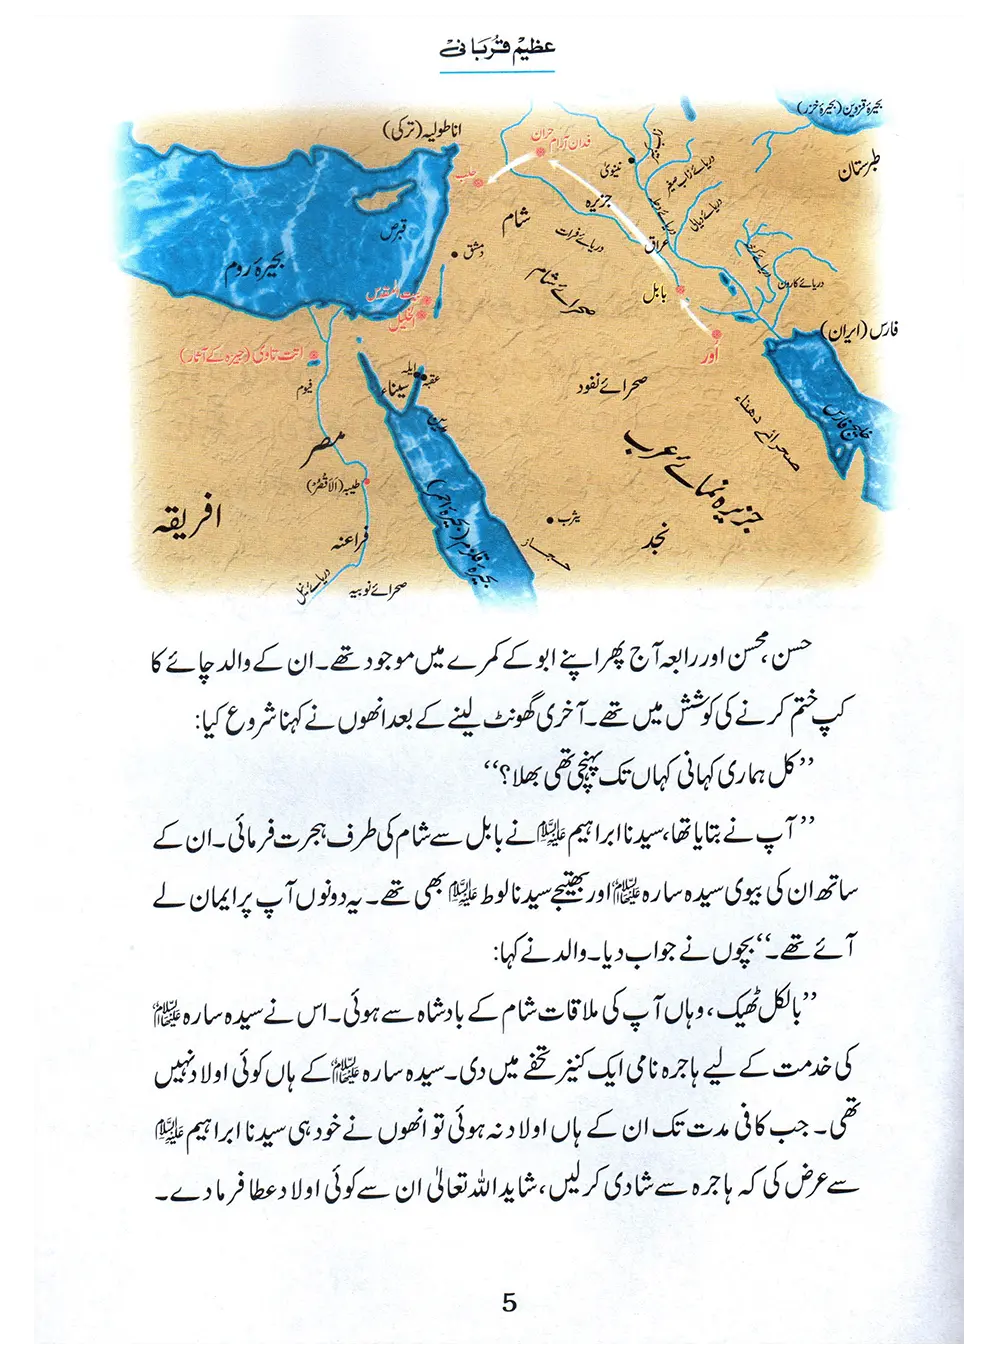 عظیم قربانی
بحیرۂ قزوین (بحیرۂ خزر)
اناطولیہ (ترکی)
فدان آرام
حران
طبرستان
نینویٰ
دریائے زاب صغیر
حلب
جزیرہ
دریائے دجلہ
دریائے دیالی
قبرص
شام
دریائے فرات
عراق
دمشق
بحیرۂ روم
صحرائے شام
دریائے کارون
بابل
بیت المقدس
الخلیل
فارس (ایران)
اُور
ایلہ
عقبہ
فیوم
سیناء
مدین
صحرائے نفود
صحرائے دھناء
خلیج فارس
مصر
جزیرہ نمائے عرب
طیبہ (الاقصر)
بحیرۂ قلزم (بحیرۂ احمر)
افریقہ
یثرب
نجد
حجاز
فراعنہ
دریائے نیل
صحرائے نوبیہ
حسن، محسن اور رابعہ آج پھر اپنے ابو کے کمرے میں موجود تھے۔ ان کے والد چائے کا
کپ ختم کرنے کی کوشش میں تھے۔ آخری گھونٹ لینے کے بعد انھوں نے کہنا شروع کیا:
’’کل ہماری کہانی کہاں تک پہنچی تھی بھلا؟‘‘
’’آپ نے بتایا تھا، سیدنا ابراہیم علیہ السلام نے بابل سے شام کی طرف ہجرت فرمائی۔ ان کے
ساتھ ان کی بیوی سیدہ سارہ علیہا السلام اور بھتیجے سیدنا لوط علیہ السلام بھی تھے۔ یہ دونوں آپ پر ایمان لے
آئے تھے۔‘‘ بچوں نے جواب دیا۔ والد نے کہا:
’’بالکل ٹھیک، وہاں آپ کی ملاقات شام کے بادشاہ سے ہوئی۔ اس نے سیدہ سارہ علیہا السلام
کی خدمت کے لیے ہاجرہ نامی ایک کنیز تحفے میں دی۔ سیدہ سارہ علیہا السلام کے ہاں کوئی اولاد نہیں
تھی۔ جب کافی مدت تک ان کے ہاں اولاد نہ ہوئی تو انھوں نے خود ہی سیدنا ابراہیم علیہ السلام
سے عرض کی کہ ہاجرہ سے شادی کر لیں، شاید اللہ تعالیٰ ان سے کوئی اولاد عطا فرما دے۔
5